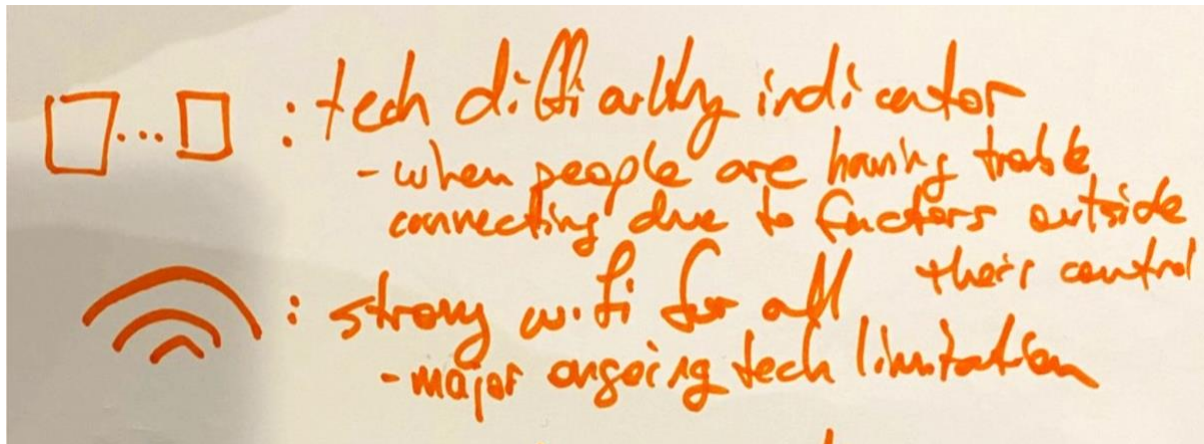 : tech difficulty indicator
- when people are having trouble
connecting due to factors outside
their control
: strong wifi for all
- major ongoing tech limitation